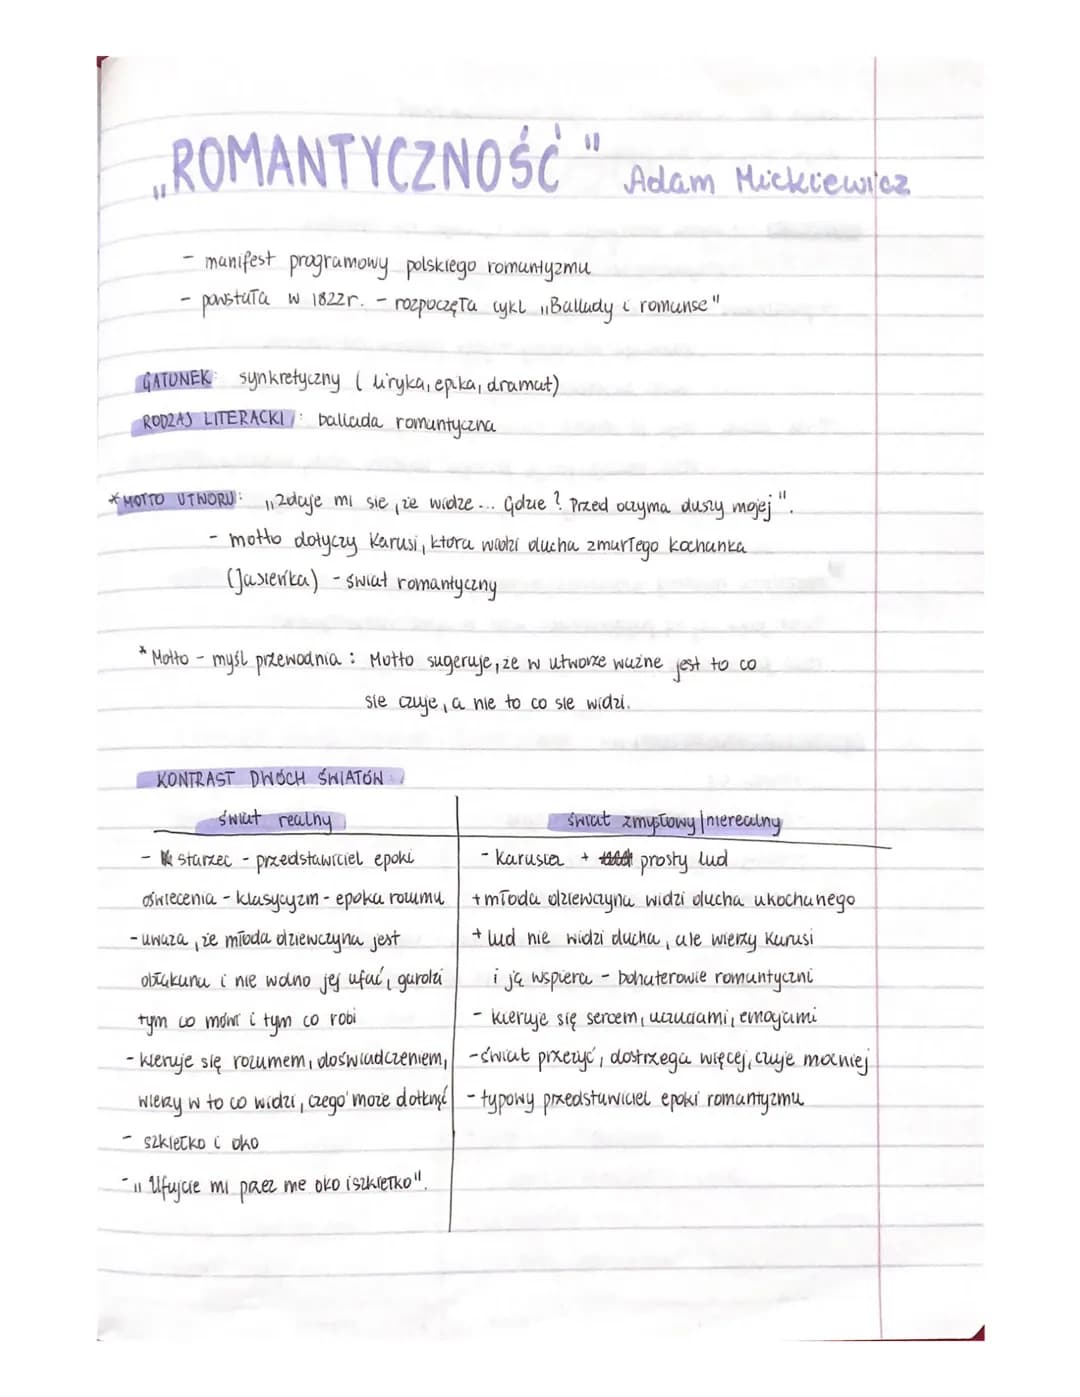 „ROMANTYCZNOŚĆ" Adam Mickiewicz
- manifest programowy polskiego romantyzmu
- powstała w 1822r. - rozpoczęła cykl „Ballady i romanse"
GATUNEK: synkretyczny (liryka, epika, dramat)
RODZAJ LITERACKI: ballada romantyczna
* MOTTO UTWORU: „Zdaje mi sie, że widze... Gdzie? Przed oczyma duszy mojej".
- motto dotyczy Karusi, która widzi ducha zmarłego kochanka
(Jasieńka) - świat romantyczny
* Motto - myśl przewodnia: Motto sugeruje, że w utworze ważne jest to co
sie czuje, a nie to co sie widzi.
KONTRAST DWÓCH ŚWIATÓW
świat realny
- starzec - przedstawiciel epoki
oświecenia - klasycyzm - epoka rozumu
- uważa, że młoda dziewczyna jest
obłąkana i nie wolno jej ufać, gardzi
tym co mówi i tym co robi
- kieruje się rozumem, doświadczeniem,
wierzy w to co widzi, czego może dotknąć
- szkiełko i oko
- „Ufajcie mi przez me oko i szkiełko".
świat zmysłowy/nierealny
- Karusia + prosty lud
+ młoda dziewczyna widzi ducha ukochanego
+ lud nie widzi ducha, ale wierzy Karusi
i ją wspiera - bohaterowie romantyczni
- kieruje się sercem, uczuciami, emocjami
- świat przeżyć, dostrzega więcej, czuje mocniej
- typowy przedstawiciel epoki romantyzmu